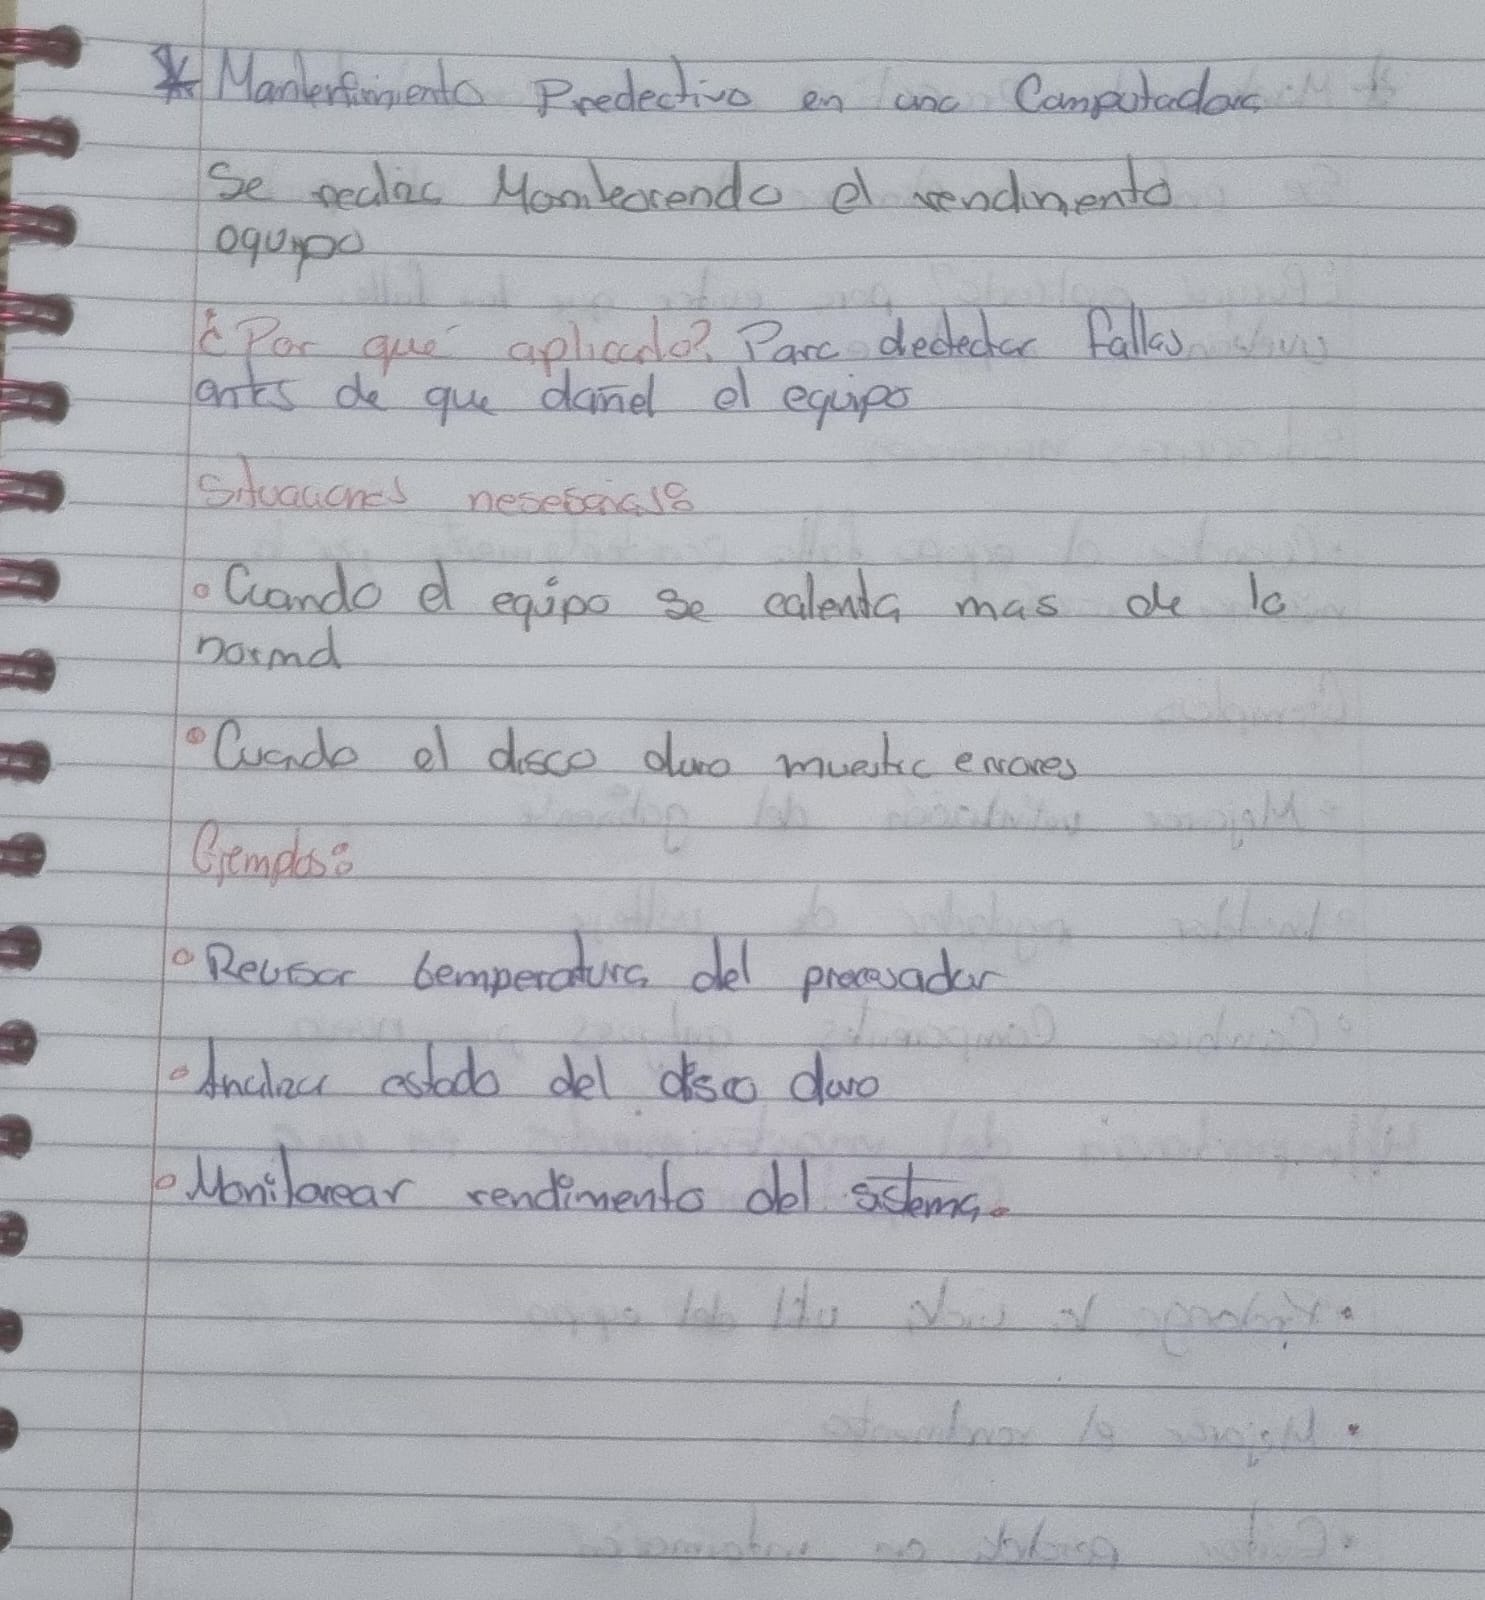 * Mantenimiento Predectivo en una Computadora
Se realiza Monitoreando el rendimento
equipo
¿Por qué aplicarlo? Para dedectar fallas
antes de que dañel el equipo
Situaciones nesesarias:
• Cuando el equipo se calenta mas de lo
normal
• Cuando el disco duro muestra errores
Ejemplos:
• Revisar temperatura del procesador
• Analizar estado del disco duro
• Monitorear rendimento del sistema.